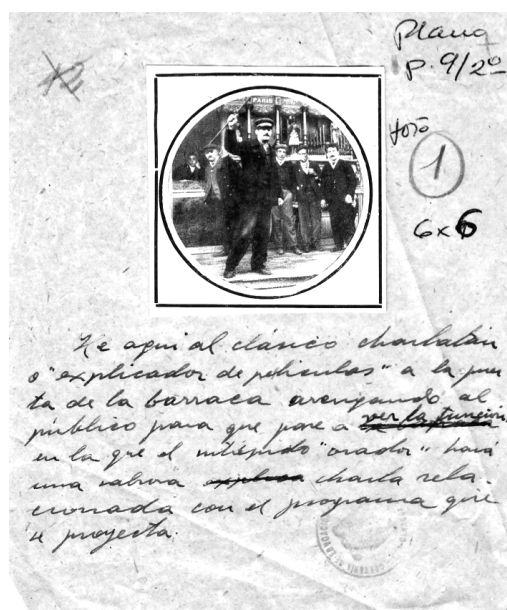 Plana
p. 9/2º
foto
1
6x6
PARIS
He aqui al clásico charlatán
o "explicador de peliculas" a la puer
ta de la barraca arengando al
público para que pase a ver la función
en la que el intrépido "orador" hará
una charla rela-
cionada con el programa que
se proyecta.